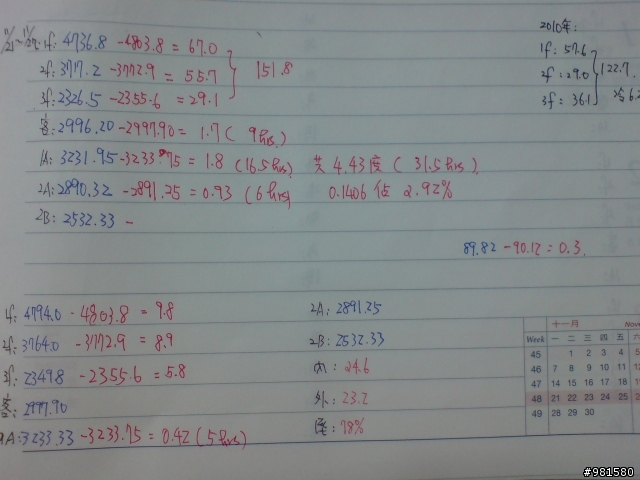 11/21~11/27. 1f: 4736.8 -4803.8 = 67.0
2f: 3717.2 -3772.9 = 55.7
3f: 2326.5 -2355.6 = 29.1
151.8
客: 2996.20 -2997.90 = 1.7 ( 9 hrs )
1A: 3231.95 -3233.75 = 1.8 (16.5 hrs) 共 4.43度 ( 31.5 hrs )
2A: 2890.32 -2891.25 = 0.93 (6 hrs) 0.1406 佔 2.92%
2B: 2532.33 -
2010年:
1f: 57.6
2f: 29.0
3f: 36.1
122.7.
冷 6.2
89.82 -90.12 = 0.3.
1f: 4794.0 -4803.8 = 9.8
2f: 3764.0 -3772.9 = 8.9
3f: 2349.8 -2355.6 = 5.8
客: 2997.90
1A: 3233.33 -3233.75 = 0.42 (5 hrs)
2A: 2891.25
2B: 2532.33
內: 24.6
外: 23.2
溼: 78%
十一月 Nov
Week 一 二 三 四 五 六
45 1 2 3 4 5
46 7 8 9 10 11
47 14 15 16 17 18
48 21 22 23 24 25
49 28 29 30
#981580